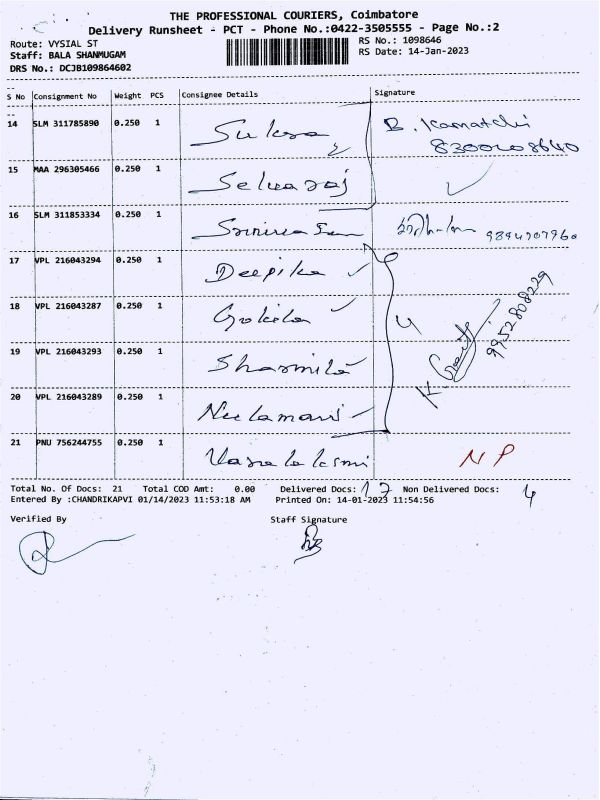 THE PROFESSIONAL COURIERS, Coimbatore
Delivery Runsheet - PCT - Phone No.:0422-3505555 - Page No.:2
Route: VYSIAL ST
RS No.: 1098646
Staff: BALA SHANMUGAM
RS Date: 14-Jan-2023
DRS No.: DCJB109864602
S No Consignment No Weight PCS Consignee Details Signature
14 SLM 311785890 0.250 1 B. Kamatchi
15 MAA 296305466 0.250 1 Selvaraj
16 SLM 311853334 0.250 1
17 VPL 216043294 0.250 1 Deepika
18 VPL 216043287 0.250 1 Gokila
9952808229
19 VPL 216043293 0.250 1 Sharmila
20 VPL 216043289 0.250 1 Neelamani
21 PNU 756244755 0.250 1 NP
Total No. Of Docs: 21 Total COD Amt: 0.00 Delivered Docs: 17 Non Delivered Docs: 4
Entered By :CHANDRIKAPVI 01/14/2023 11:53:18 AM Printed On: 14-01-2023 11:54:56
Verified By Staff Signature